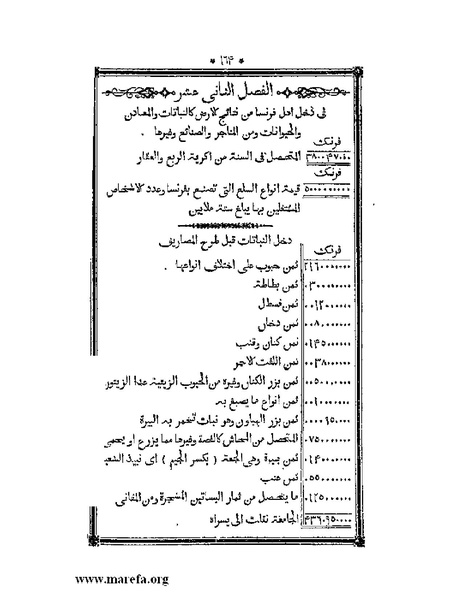 * ١٦٤ *
الفصل الثانى عشر
فى دخل اهل فرنسا من نتائج الارض كالنباتات والمعادن
والحيوانات ومن المتاجر والصنائع وغيرها .
فرنك
٣٨٠٠٤٧٠٤٠ المتحصل فى السنة من اكرية الربع والعقار
فرنك
٥٠٠٠٠٠٠٠٠٠ قيمة انواع السلع التى تصنع بفرنسا وعدد الاشخاص
المشتغلين بها يبلغ ستة ملايين
دخل النباتات قبل طرح المصاريف
فرنك
٢١٦٠٠٠٠٠٠٠ ثمن حبوب على اختلاف انواعها .
٠٣٠٠٠٠٠٠٠ ثمن بطاطة
٠٠١٢٠٠٠٠٠٠ ثمن قسطل
٠٠٨٠٠٠٠٠٠ ثمن دخان
٠١٤٥٠٠٠٠٠ ثمن كتان وقنب
٠٠٣٨٠٠٠٠٠ ثمن اللفت الاحمر
٠٠٥٠٠٠٠٠٠ ثمن بزر الكتان وغيره من الحبوب الزيتية عدا الزيتون
٠٠١٠٠٠٠٠٠ ثمن انواع ما يصبغ به
٠٠٠٠٦٥٠٠٠ ثمن بزر الهبلون وهو نبات تخمر به البيرة
٠٧٥٠٠٠٠٠٠ المتحصل من الحشائش كالفصة وغيرها مما يزرع او يحمى
٠١٤٠٠٠٠٠٠ ثمن بيرة وهى الجعة ( بكسر الجيم ) اى نبيذ الشعير
٠٥٥٠٠٠٠٠٠ ثمن عنب
٠١٢٥٠٠٠٠٠ ما يتحصل من ثمار البساتين المشجرة ومن المقاثى
٤٣٦٠٩٥٠٠٠٠ الجامعة
www.marefa.org